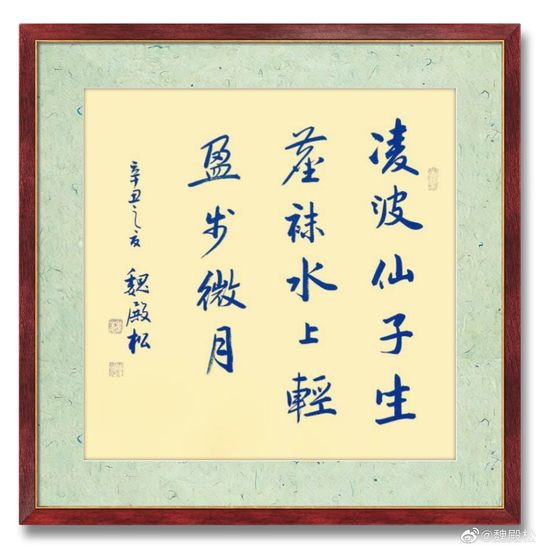 凌波仙子生
塵袜水上輕
盈步微月
辛丑之
魏殿松
@魏殿松